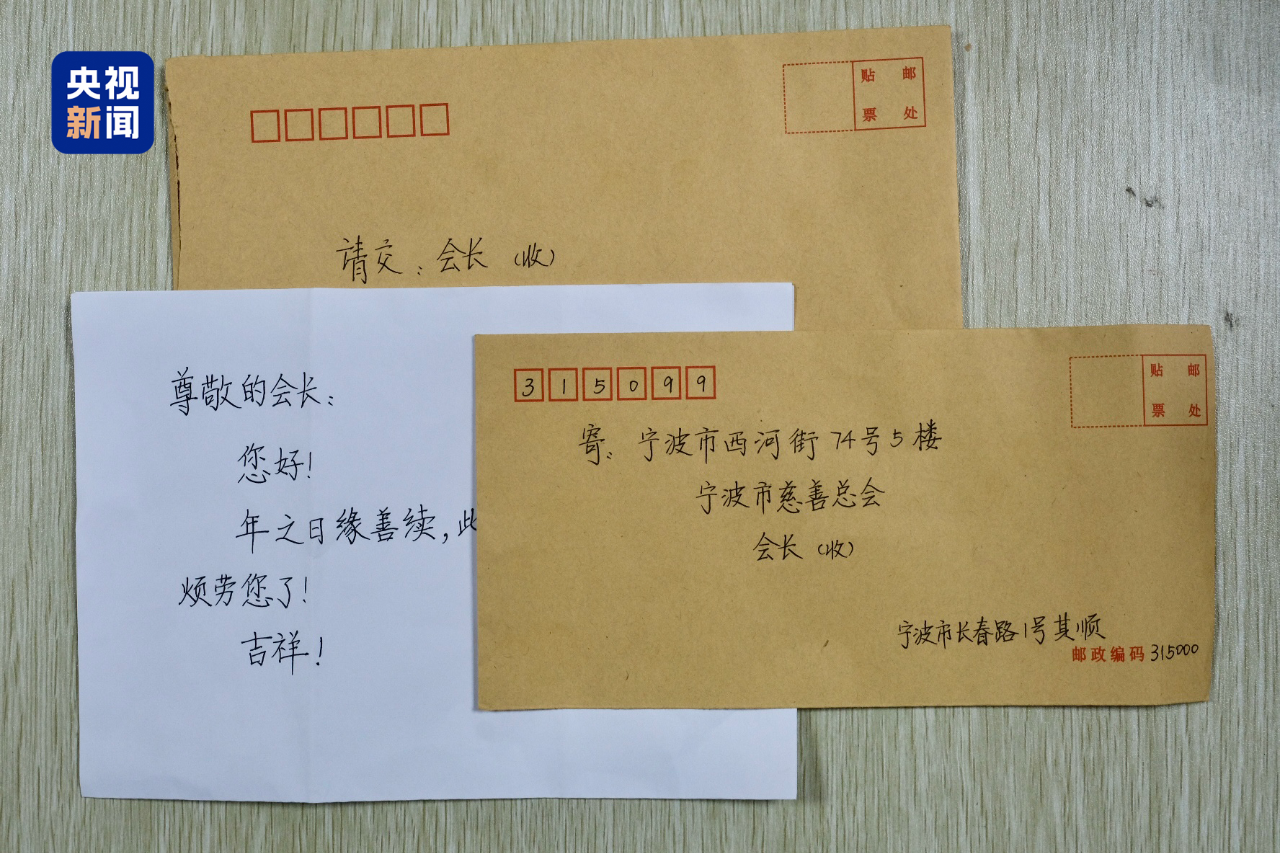 央视
新闻
贴 邮
票 处
请交:会长(收)
尊敬的会长:
您好!
年之日缘善续,此
烦劳您了!
吉祥!
315099
贴 邮
票 处
寄:宁波市西河街74号5楼
宁波市慈善总会
会长(收)
宁波市长春路1号其顺
邮政编码 315000